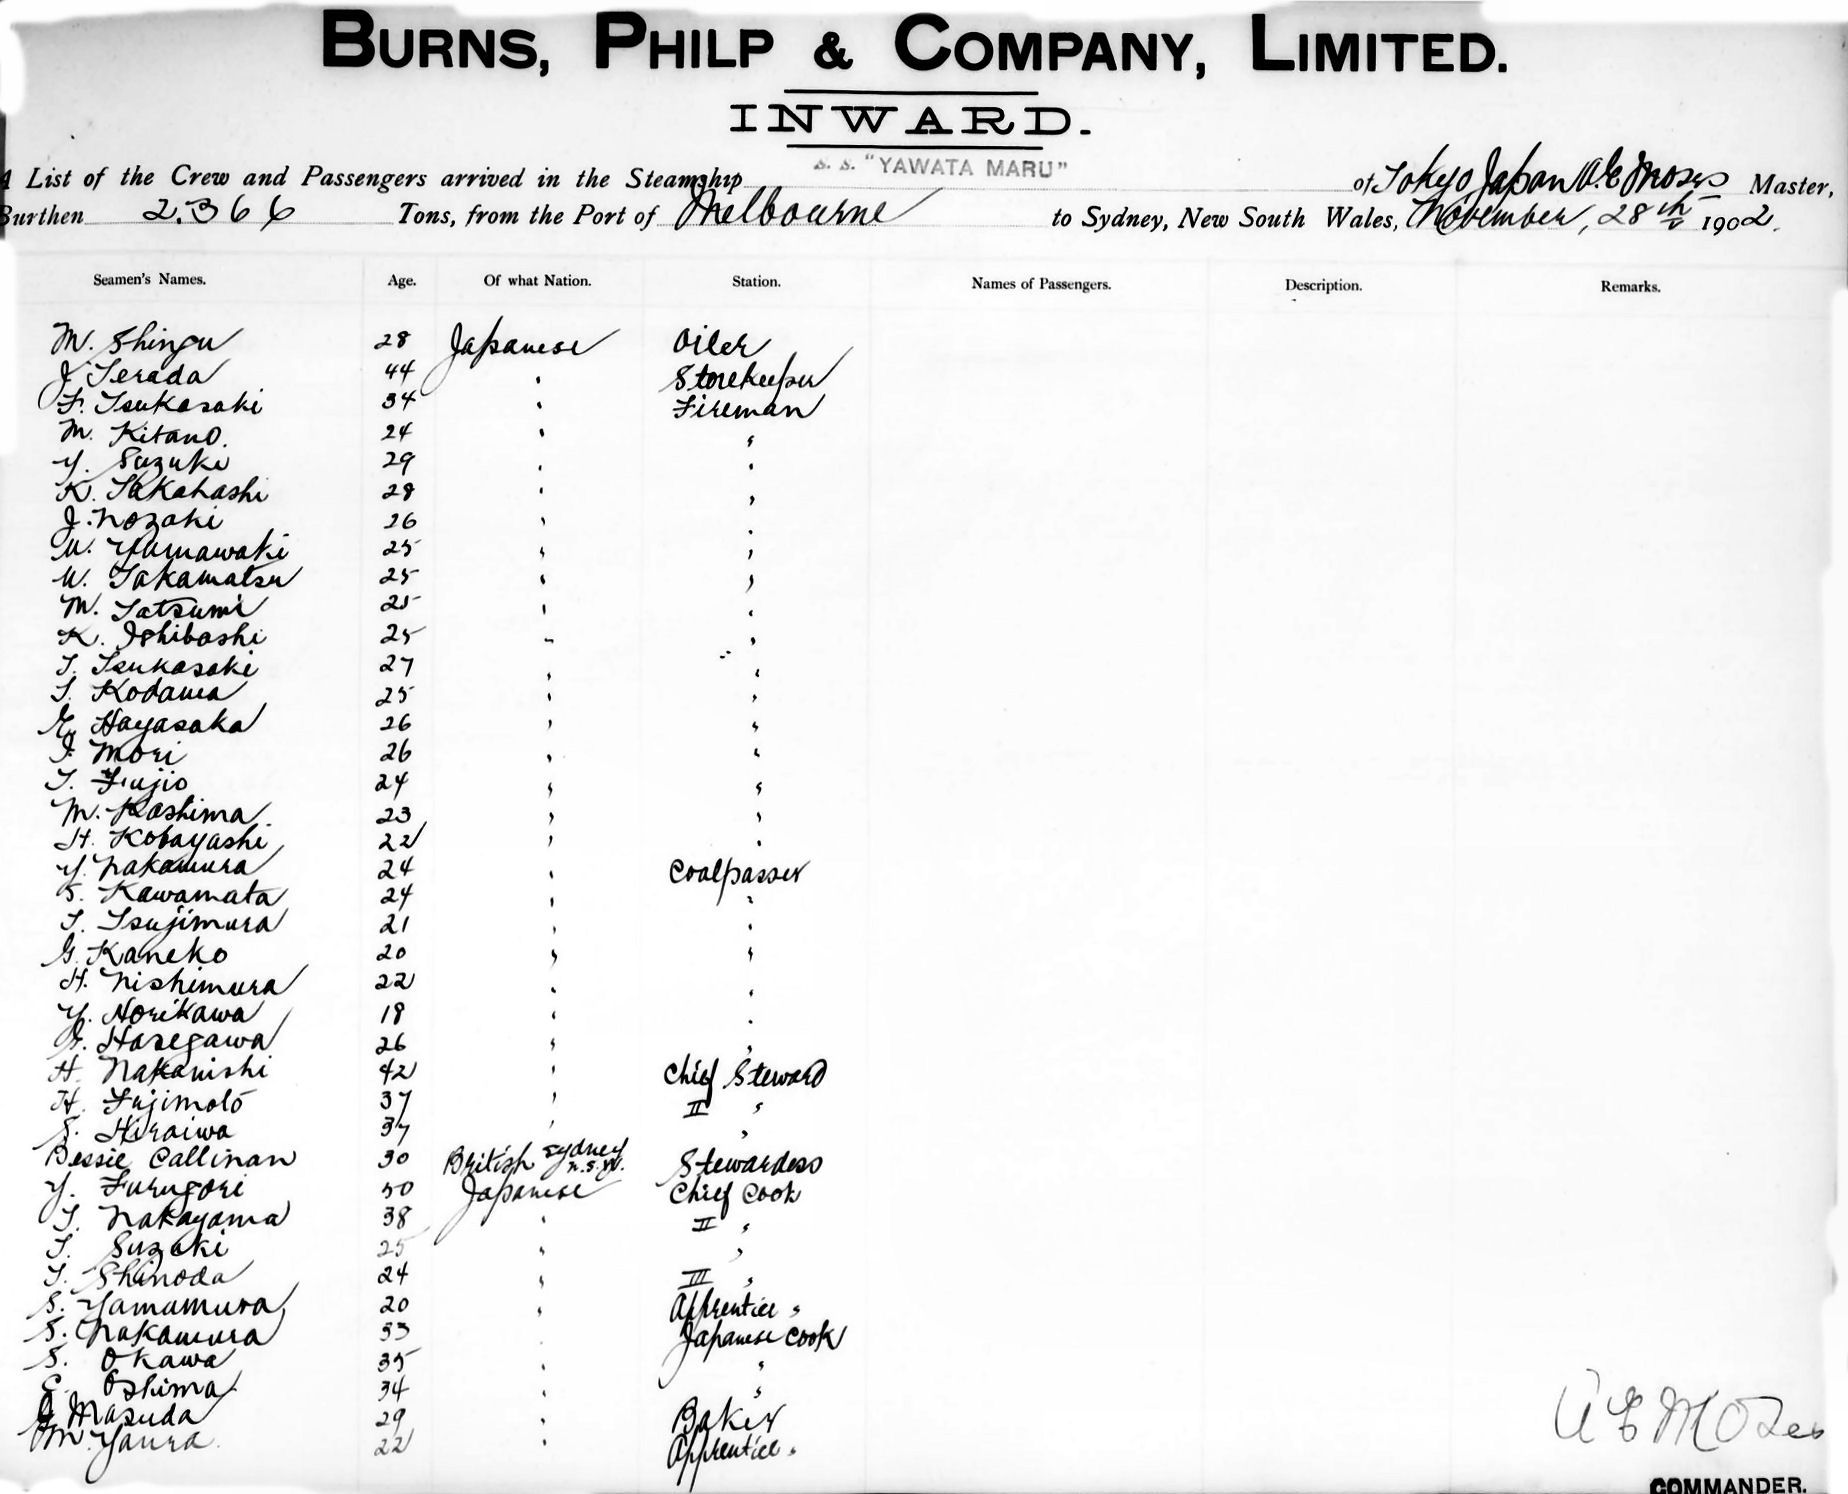 BURNS, PHILP & COMPANY, LIMITED.
INWARD.
A List of the Crew and Passengers arrived in the Steamship S. S. "YAWATA MARU" of Tokyo Japan A. E Moses Master,
Burthen 2.366 Tons, from the Port of Melbourne to Sydney, New South Wales, November, 28th 1902.
Seamen's Names. Age. Of what Nation. Station. Names of Passengers. Description. Remarks.
M. Shingu 28 Japanese Oiler
J. Terada 44 " Storekeeper
F. Tsukasaki 34 " Fireman
M. Kitano. 24 " "
Y. Suzuki 29 " "
K. Takahashi 28 " "
J. Nozaki 26 " "
U. Yamawaki 25 " "
U. Takamatsu 25 " "
M. Tatsumi 25 " "
K. Ishibashi 25 " "
T. Tsukasaki 27 " "
T. Kodama 25 " "
E. Hayasaka 26 " "
I. Mori 26 " "
T. Fujio 24 " "
M. Kashima 23 " "
H. Kobayashi 22 " "
Y. Nakamura 24 " Coalpasser
S. Kawamata 24 " "
T. Tsujimura 21 " "
G. Kaneko 20 " "
H. Nishimura 22 " "
Y. Norikawa 18 " "
Hasegawa 26 " "
H. Nakanishi 42 " Chief Steward
H. Fujimoto 37 " II "
S. Hiraiwa 37 " "
Bessie Callinan 30 British Sydney N.S.W. Stewardess
Y. Furugori 50 Japanese Chief Cook
T. Nakayama 38 " II "
T. Suzuki 25 " "
T. Shinoda 24 " III "
S. Yamamura 20 " Apprentice "
S. Nakamura 33 " Japanese Cook
S. Okawa 35 " "
E. Oshima 34 " "
Masuda 29 " Baker
M. Yaura 22 " Apprentice "
A E Moses
COMMANDER.